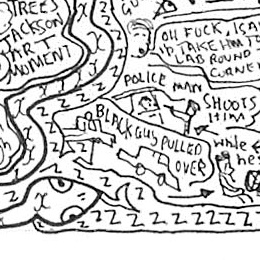 TREES
JACKSON
ART
MOMENT
OH FUCK, IS A
I'D TAKE HIM TO
LAB ROUND
CORNER
POLICE MAN
SHOOTS
HIM
BLACK GUY PULLED
OVER
while
he's